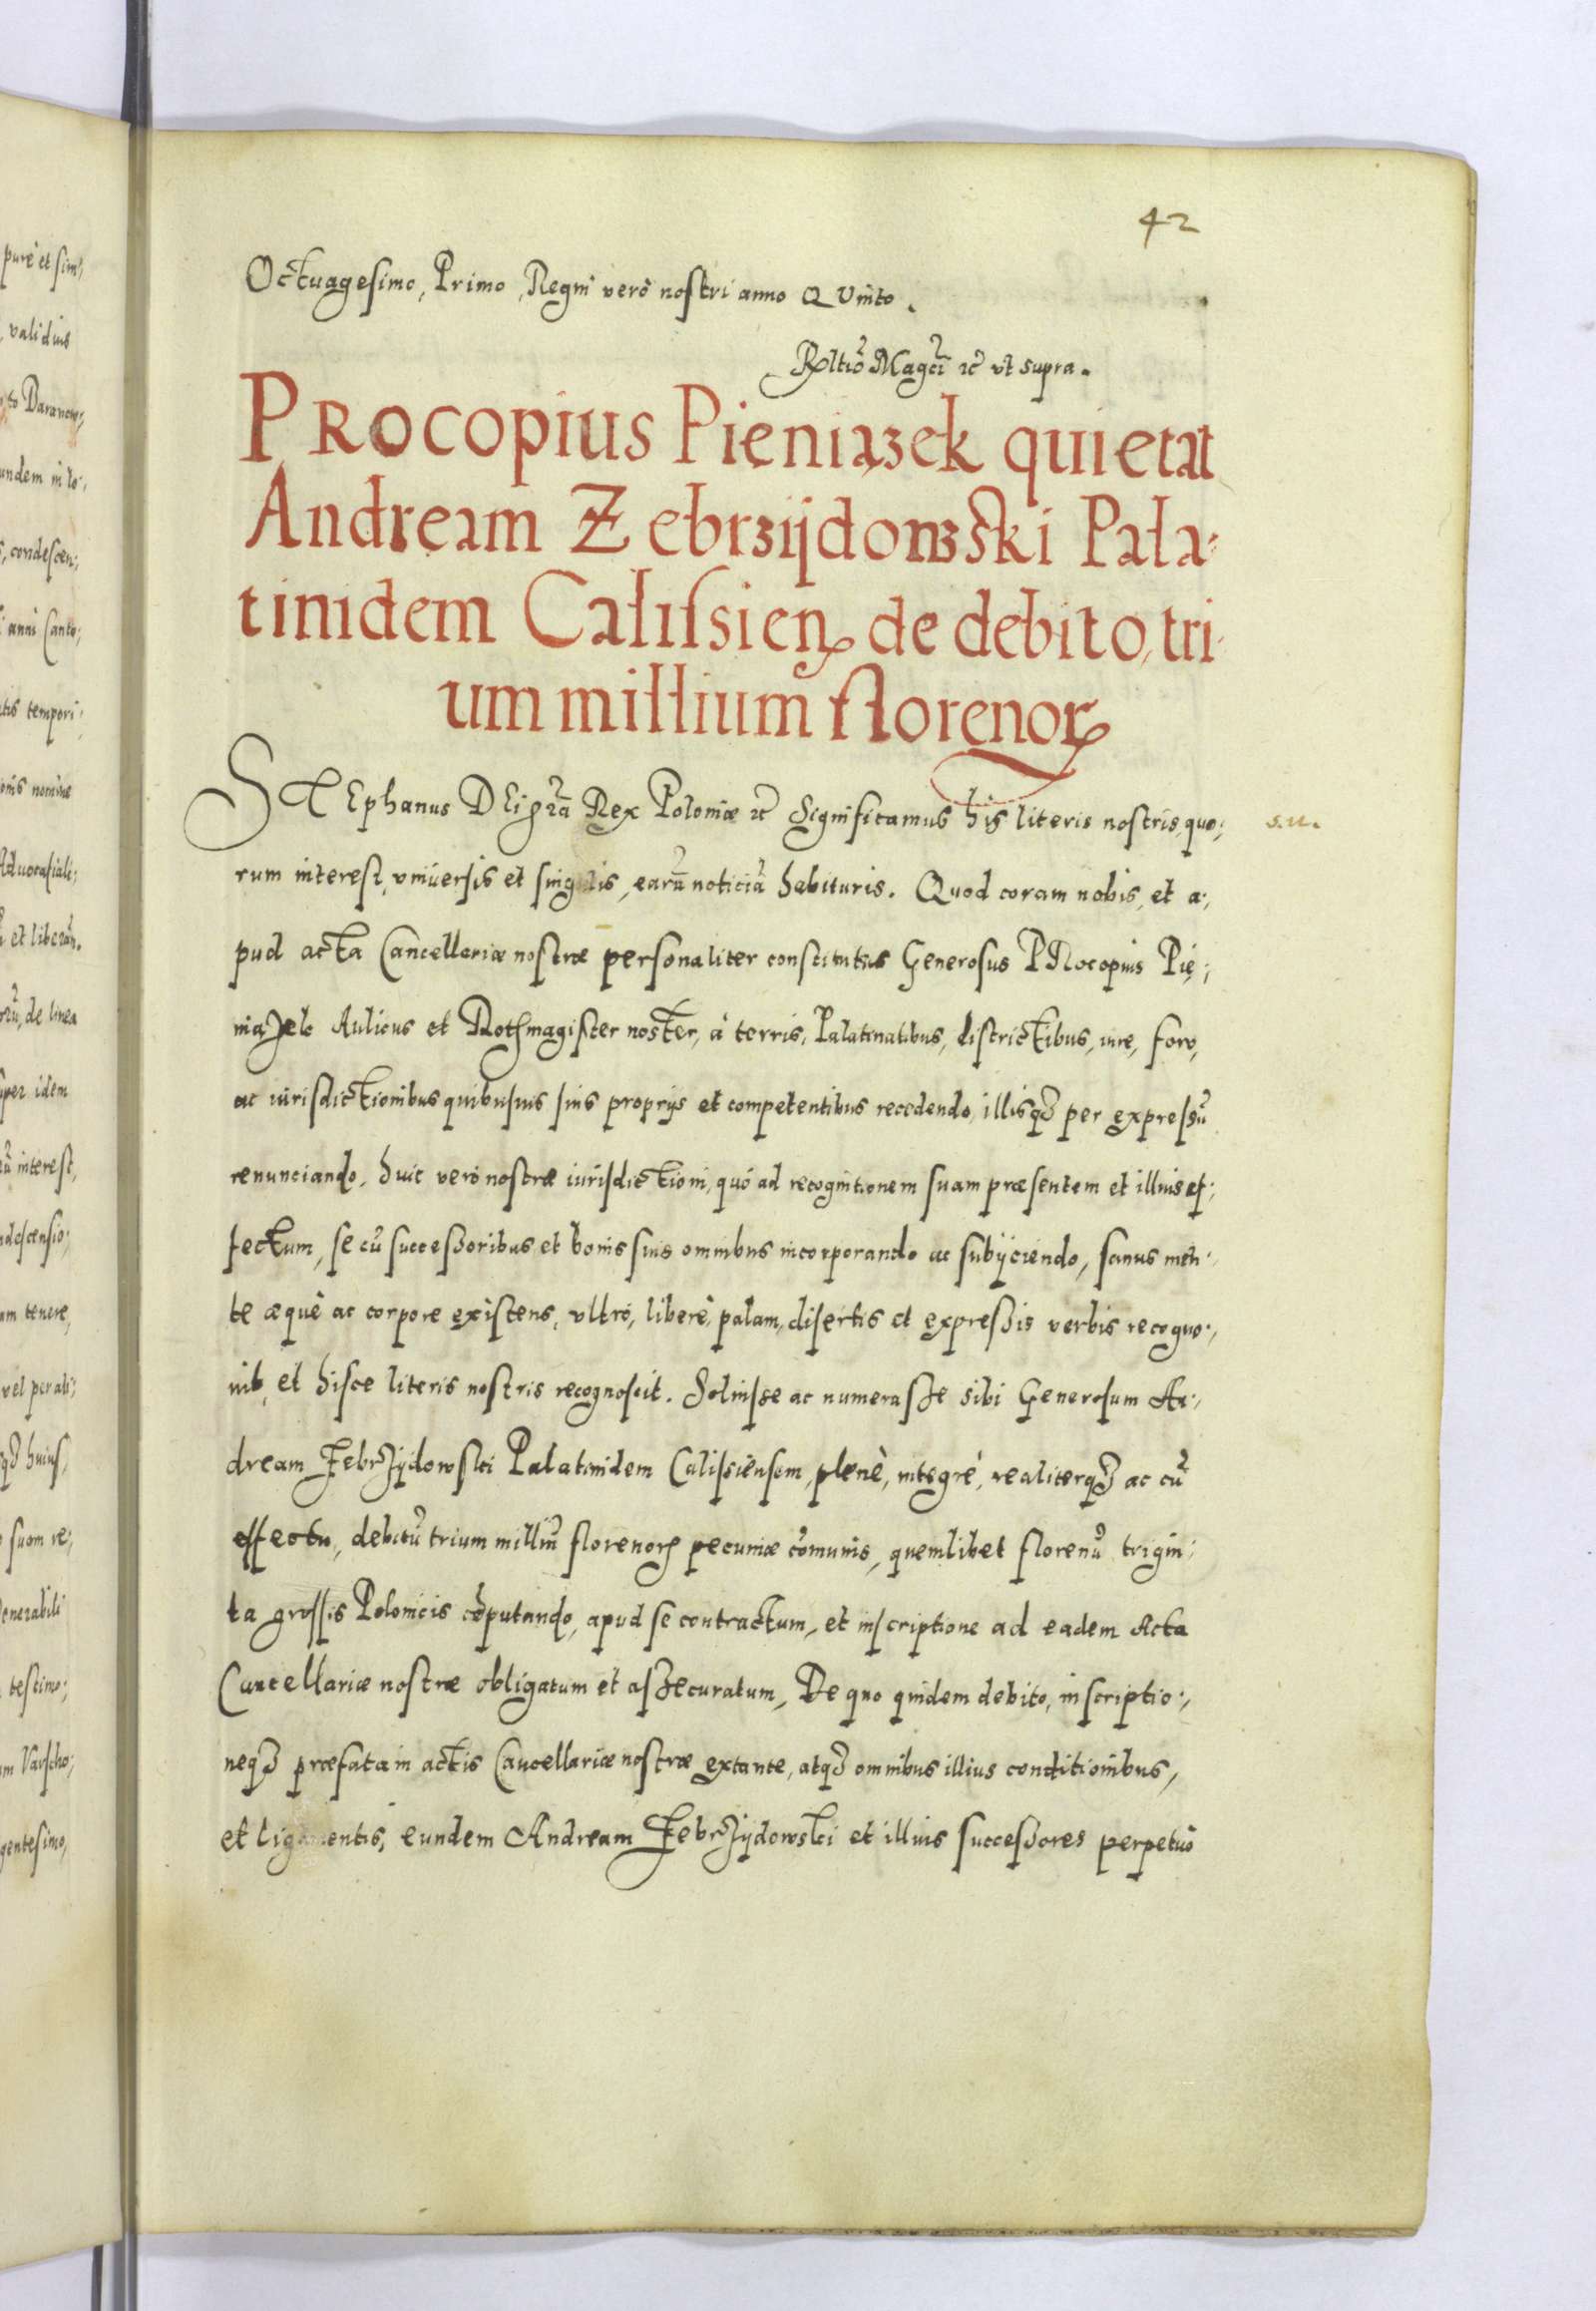 42
Octuagesimo, Primo, Regni verò nostri anno QVinto.
Rltiõ Magcĩ etc̃ vt supra.
PROCOpius Pieniązek quietat
Andream Zebrzijdowski Pala:
tinidem Calissien̄ de debito, tri:
um millium florenoꝝ
STEphanus DEi gr̃a Rex Poloniæ etc̃ Significamus his literis nostris, quo:,
s. u.
rum interest, vniuersis et singulis, earũ noticiã habituris. Quod coram nobis, et a:,
pud acta Cancellariæ nostræ personaliter constitutus Generosus PRocopius Pię:,
niązek Aulicus et Rothmagister noster, à terris, Palatinatibus, districtibus, iure, foro,
ac iurisdictionibus quibusuis suis proprijs et competentibus recedendo, illisqȝ per expressũ
renunciando, huic verò nostræ iurisdictioni, quó ad recognitionem suam præsentem et illius ef:,
fectum, se cũ successoribus et bonis suis omnibus incorporando ac subijciendo, sanus men:
te æquè ac corpore existens, vltró, liberè, palam, disertis et expressis verbis recogno:,
uit, et hisce literis nostris recognoscit. Soluisse ac numerasse sibi Generosum An:,
dream Zebrzijdowski Palatinidem Calissiensem, plenè, integrè, realiterqȝ ac cũ
effectu, debitũ trium milliũ florenoꝝ pecuniæ cõmunis, quemlibet florenũ trigin:
ta grossis Polonicis cõputando, apud se contractum, et inscriptione ad eadem Acta
Cancellariæ nostræ obligatum et assecuratum, De quo quidem debito, inscriptio:,
neqȝ præfata in actis Cancellariæ nostræ extante, atqȝ omnibus illius conditionibus,
et ligamentis, eundem Andream Zebrzijdowski et illius successores perpetuò